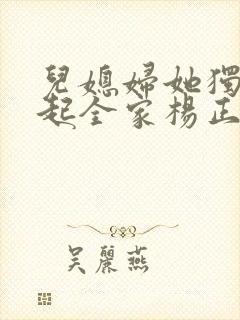 兒媳婦她獨
起全家楊正
吳麗燕